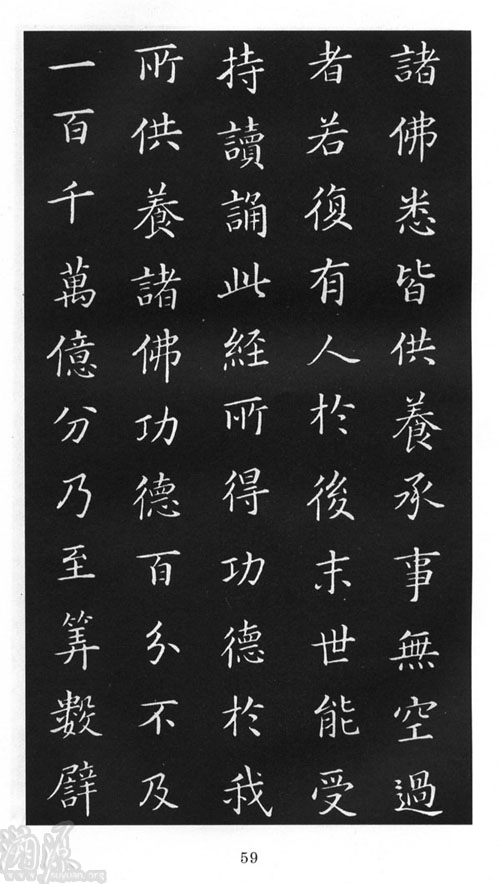 諸佛悉皆供養承事無空過
者若復有人於後末世能受
持讀誦此經所得功德於我
所供養諸佛功德百分不及
一百千萬億分乃至筭數譬
59
溯源
www.suyuan.org